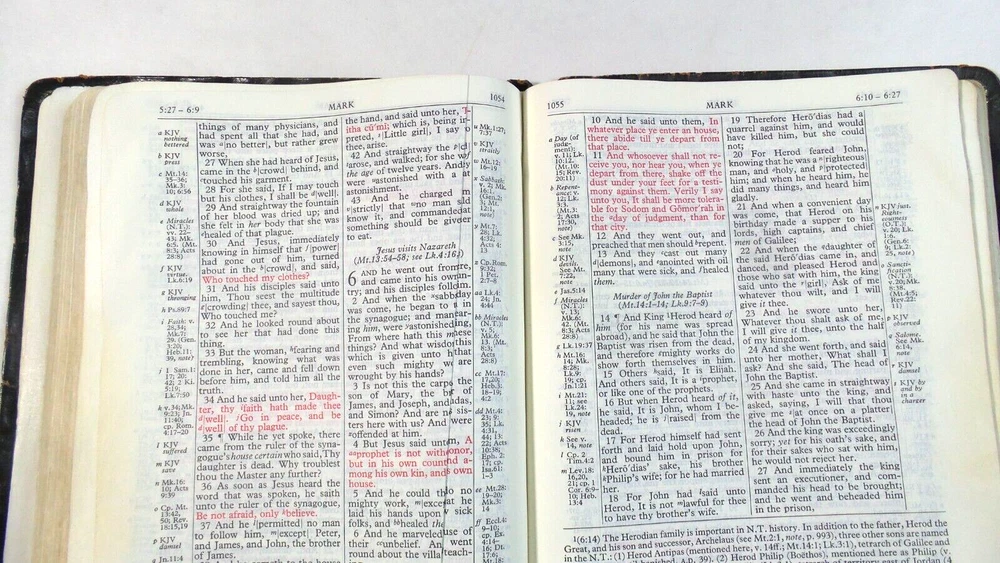 5:27 – 6:9
MARK
1054
a KJV
nothing
bettered
b KJV
press
c Mt.14:
35–36;
Mk.3:
10; 6:56
d KJV
whole
e Miracles
(N.T.):
vv. 22–
43; Mk.
6:5. (Mt.
8:3; Acts
28:8)
f KJV
virtue.
Lk.6:19
g KJV
thronging
h Ps.89:7
i Faith: v.
28,34;
Mk.7:
29. (Gen.
3:20;
Heb.11:
39, note)
j 1 Sam.1:
17; 20:
42; 2 Ki.
5:19;
Lk.7:50
k v.34; Mk.
9:23; Jn.
11:40;
cp. Rom.
4:17–20
l KJV
suffered
m KJV
save
n Mk.16:
10; Acts
9:39
o Cp. Mt.
13:42,
50; Rev.
18:15,19
p KJV
damsel
q Jn.11:4
things of many physicians, and
had spent all that she had, and
was no better, but rather grew
worse,
27 When she had heard of Jesus,
came in the crowd behind, and
touched his garment.
28 For she said, If I may touch
but his clothes, I shall be well.
29 And straightway the fountain
of her blood was dried up; and
she felt in her body that she was
healed of that plague.
30 And Jesus, immediately
knowing in himself that power
had gone out of him, turned
about in the crowd, and said,
Who touched my clothes?
31 And his disciples said unto
him, Thou seest the multitude
crowding thee, and sayest thou,
Who touched me?
32 And he looked around about
to see her that had done this
thing.
33 But the woman, fearing and
trembling, knowing what was
done in her, came and fell down
before him, and told him all the
truth.
34 And he said unto her, Daugh-
ter, thy faith hath made thee
well. Go in peace, and be
well of thy plague.
35 ¶ While he yet spoke, there
came from the ruler of the syna-
gogue's house certain who said, Thy
daughter is dead. Why troublest
thou the Master any further?
36 As soon as Jesus heard the
word that was spoken, he saith
unto the ruler of the synagogue,
Be not afraid, only believe.
37 And he permitted no man
to follow him, except Peter,
and James, and John, the brother
of James.
the hand, and said unto her,
itha cumi; which is, being
preted, Little girl, I say
thee, arise.
42 And straightway the
arose, and walked; for she
the age of twelve years. And
were astonished with a
astonishment.
43 And he charged
strictly that no man
know it, and commanded
something should be
to eat.
Jesus visits Nazareth
(Mt.13:54–58; see Lk.4:16)
6 AND he went out from
and came into his own
try; and his disciples follow
2 And when the sabbath
was come, he began to
the synagogue; and many
ing him, were astonished,
From where hath this
things? And what wisdom
which is given unto
even such mighty
wrought by his hands?
3 Is not this the
son of Mary, the
James, and Joseph, and
and Simon? And are
ters here with us? And
offended at him.
4 But Jesus said unto A
prophet is not without honor,
but in his own
mong his own kin, and
house.
5 And he could no
mighty work, except
laid his hands upon sick
folks, and healed
6 And he marveled
their unbelief. And
round about the villa teach-
u Mk.1:27;
7:37
v KJV
straitly
w Mt.12:
16–19
1055
MARK
6:10 – 6:27
a Day (of
judg-
ment):
v. 11; Lk.
10:12.
(Mt.10:
15; Rev.
20:11)
b Repent-
ance: v.
12; Lk.
3:3.
(Mt.3:
2; Acts
17:30,
note)
c See Mk.
3:15,
note
d KJV
devils.
See Mt.
7:22,
note
e Jas.5:14
f Miracles
(N.T.):
v. 13;
Mk.6:
42. (Mt.
8:3; Acts
28:8)
g Lk.19:37
h Mt.16:
14; Mk.
8:28;
Lk.9:
19; cp.
Jn.1:21
i Mt.21:
11; see
Lk.24:
19, note
j KJV
risen
k See v.
14, note
l Cp. 2
Tim.4:2
m Lev.18:
16,20,
21; cp. 1
Cor.6:9–
10; Heb.
13:4
10 And he said unto them, In
whatever place ye enter an house,
there abide till ye depart from
that place.
11 And whosoever shall not re-
ceive you, nor hear you, when ye
depart from there, shake off the
dust under your feet for a testi-
mony against them. Verily I say
unto you, It shall be more tolera-
ble for Sodom and Gomorrah in
the day of judgment, than for
that city.
12 And they went out, and
preached that men should repent.
13 And they cast out many
demons, and anointed with oil
many that were sick, and healed
them.
Murder of John the Baptist
(Mt.14:1–14; Lk.9:7–9)
14 ¶ And King Herod heard of
him (for his name was spread
abroad), and he said that John the
Baptist was risen from the dead,
and therefore mighty works do
show forth themselves in him.
15 Others said, It is Elijah.
And others said, It is a prophet,
or like one of the prophets.
16 But when Herod heard of it,
he said, It is John, whom I be-
headed; he is raised from the
dead.
17 For Herod himself had sent
forth and laid hold upon John,
and bound him in prison for
Herodias' sake, his brother
Philip's wife; for he had married
her.
18 For John had said unto
Herod, It is not lawful for thee
to have thy brother's wife.
19 Therefore Herodias had a
quarrel against him, and would
have killed him, but she could
not;
20 For Herod feared John,
knowing that he was a righteous
man, and holy, and protected
him; and when he heard him, he
did many things, and heard him
gladly.
21 And when a convenient day
was come, that Herod on his
birthday made a supper to his
lords, high captains, and chief
men of Galilee;
22 And when the daughter of
the said Herodias came in, and
danced, and pleased Herod and
those who sat with him, the king
said unto the girl, Ask of me
whatever thou wilt, and I will
give it thee.
23 And he swore unto her,
Whatever thou shalt ask of me,
I will give it thee, unto the half
of my kingdom.
24 And she went forth, and said
unto her mother, What shall I
ask? And she said, The head of
John the Baptist.
25 And she came in straightway
with haste unto the king, and
asked, saying, I will that thou
give me at once on a platter
the head of John the Baptist.
26 And the king was exceedingly
sorry; yet for his oath's sake, and
for their sakes who sat with him,
he would not reject her.
27 And immediately the king
sent an executioner, and com-
manded his head to be brought;
and he went and beheaded him
in the prison,
n KJV just.
Right-
eousness
(O.T.):
v. 20; Lk.
1:6.
(Gen.6:
9; Lk.2:
25, note)
o Sancti-
fication
(N.T.):
v.20; Mk.
8:38.
(Mt.4:5;
Rev.22:
11)
p KJV
observed
q Salome.
See Mk.
6:14,
note
r KJV
damsel
s KJV by
and by
in a
charger
1(6:14) The Herodian family is important in N.T. history. In addition to the father, Herod the
Great, and his son and successor, Archelaus (see Mt.2:1, note, p. 993), three other sons are named
in the N.T.: (1) Herod Antipas (mentioned here, v. 14ff.; Mt.14:1; Lk.3:1), tetrarch of Galilee and
(2) Herod Philip (Boëthos), mentioned here as Philip (v.